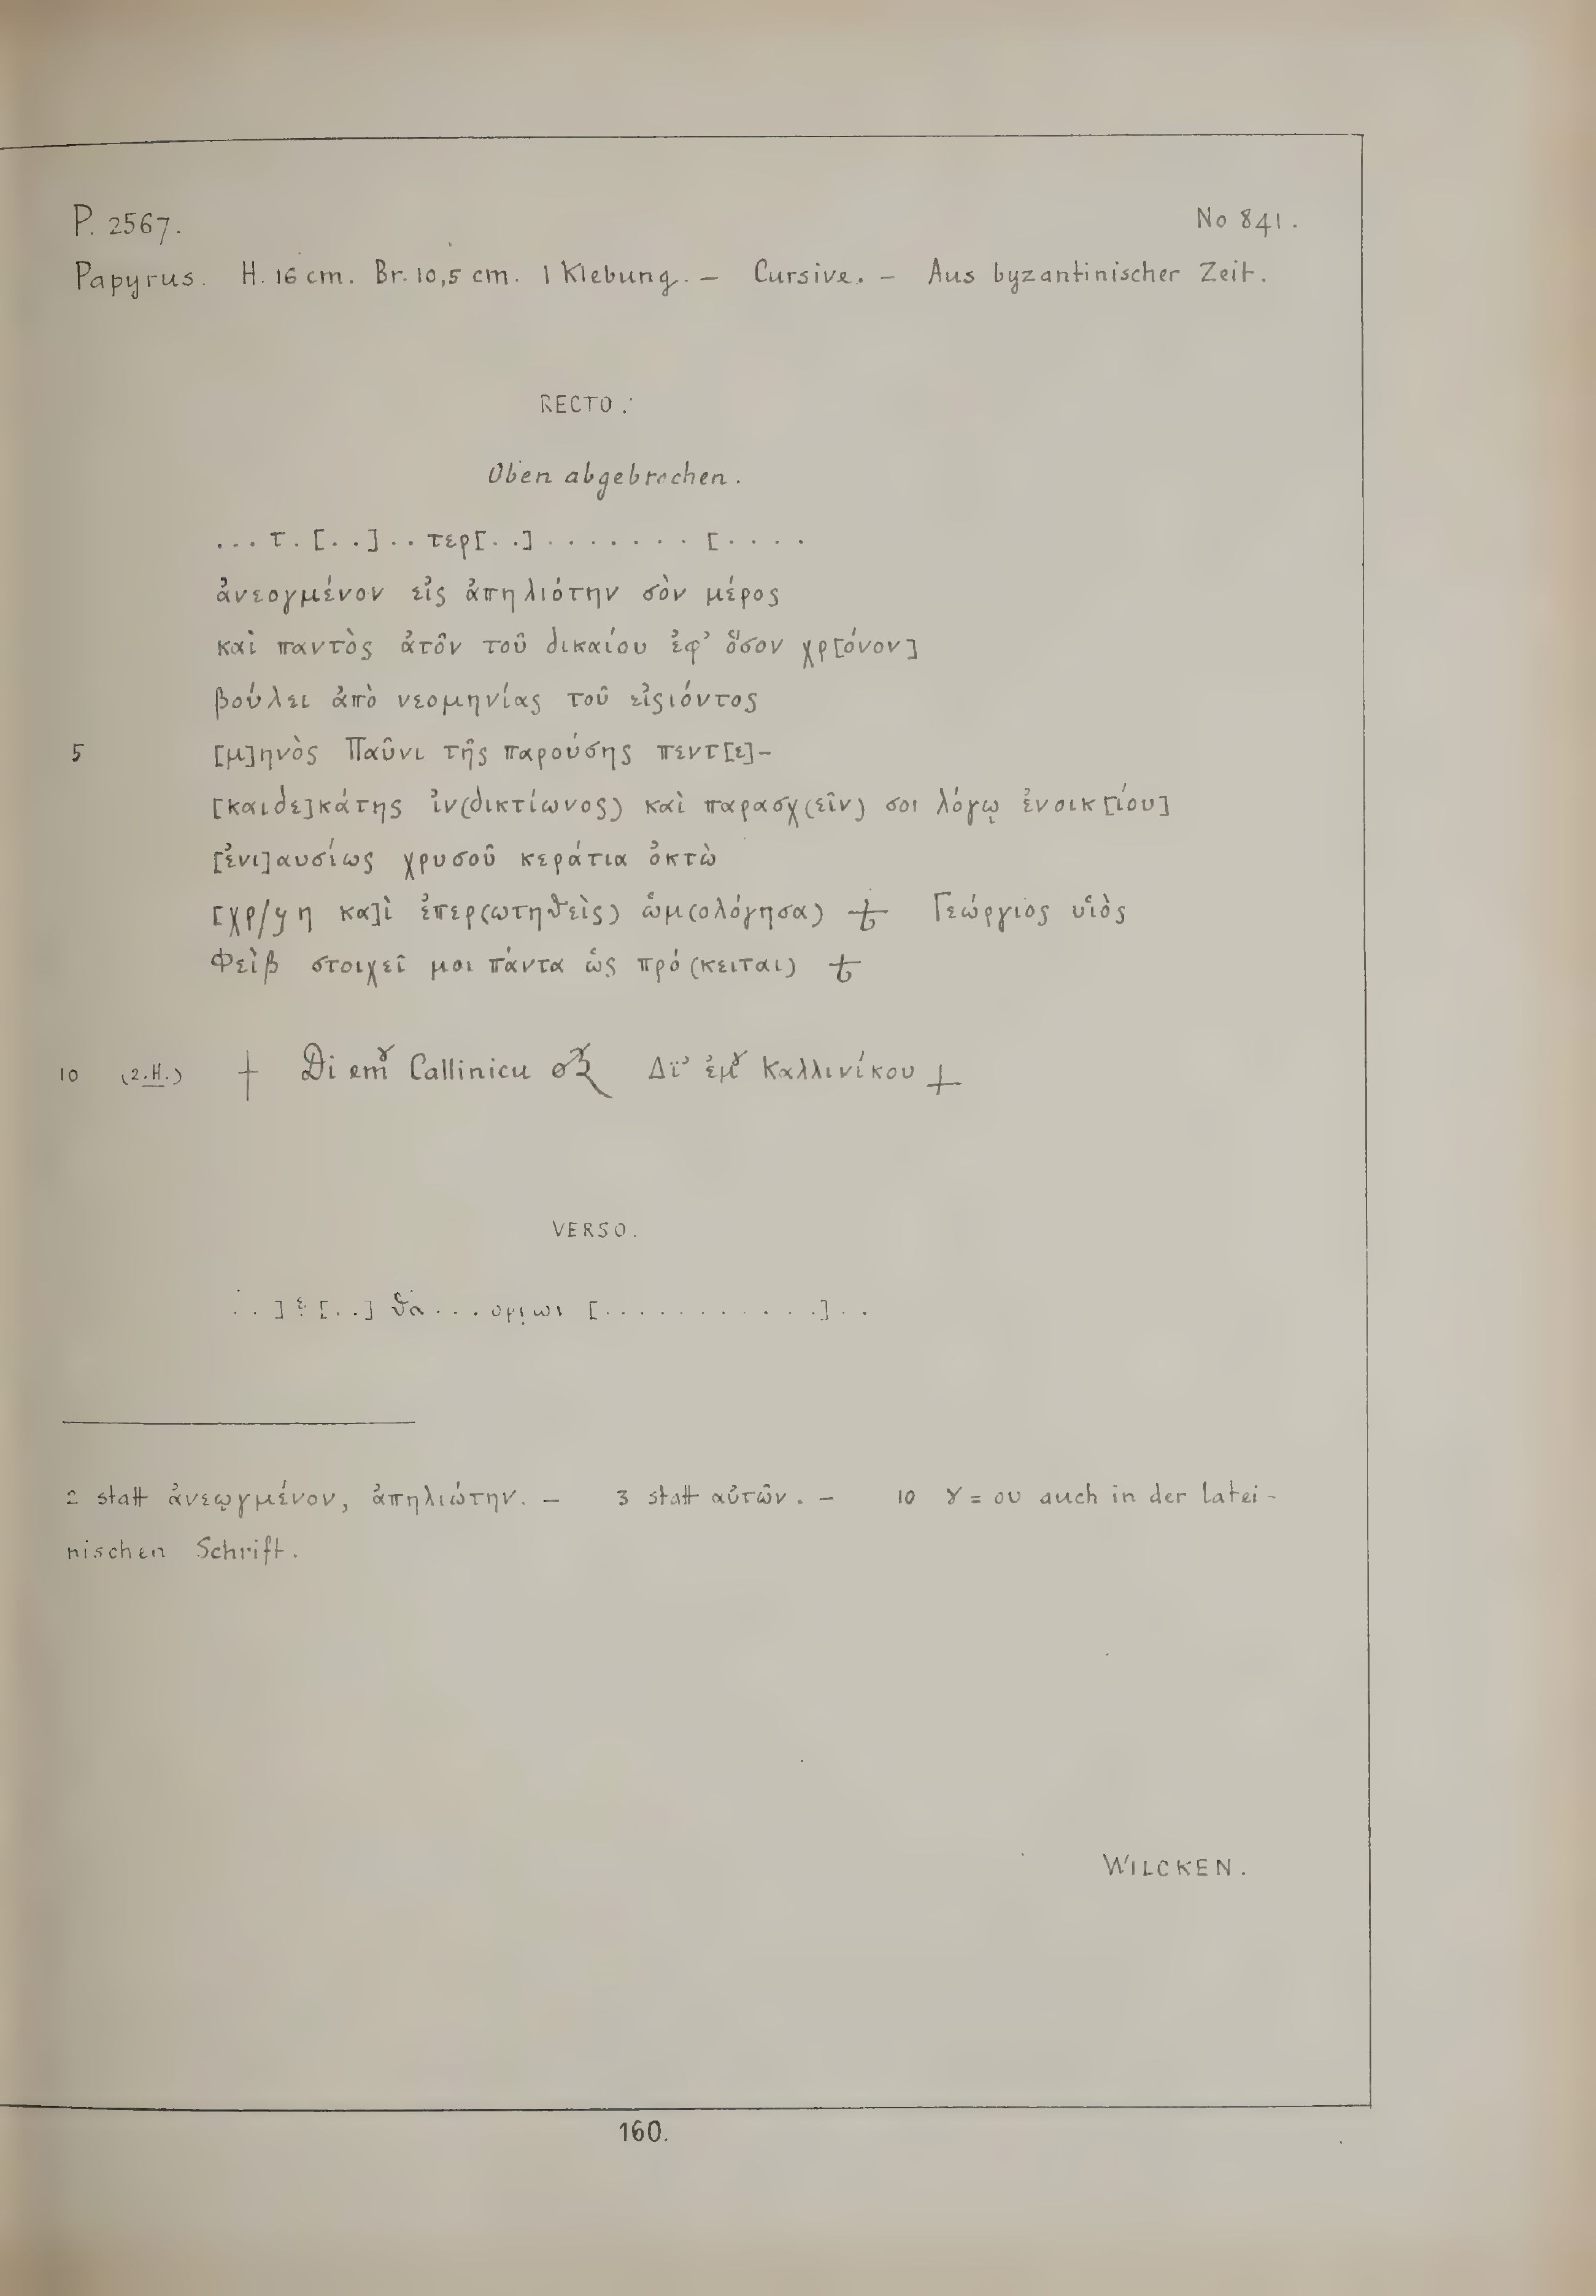 P. 2567. No 841.
Papyrus. H. 16 cm. Br. 10,5 cm. 1 Klebung. — Cursive. — Aus byzantinischer Zeit.
RECTO.
Oben abgebrochen.
... τ . [ . . ] . . τερ[ . . ] . . . . . . . [ . . . .
ἀνεογμένον εἰς ἀπηλιότην σὸν μέρος
καὶ παντὸς ἀτο͂ν τοῦ δικαίου ἐφ’ ὅσον χρ[όνον]
βούλει ἀπὸ νεομηνίας τοῦ εἰςιόντος
5 [μ]ηνὸς Παῦνι τῆς παρούσης πεντ[ε]-
[καιδε]κάτης ἰν(δικτίωνος) καὶ παρασχ(εῖν) σοι λόγῳ ἐνοικ[ίου]
[ἐνι]αυσίως χρυσοῦ κεράτια ὀκτὼ
[χρ/ y η κα]ὶ ἐπερ(ωτηθεὶς) ὡμ(ολόγησα) Γεώργιος υἱὸς
Φεὶβ στοιχεῖ μοι πάντα ὡς πρό(κειται)
10 (2.H.) † Di emȣ Callinicu Δϊ’ ἐμȣ Καλλινίκου †
VERSO.
. . ] ε [ . . ] θα . . . ομιωι [ . . . . . . . . . . . ] . .
2 statt ἀνεῳγμένον, ἀπηλιώτην. — 3 statt αὐτῶν. — 10 ȣ = ου auch in der latei-
nischen Schrift.
WILCKEN.
160.